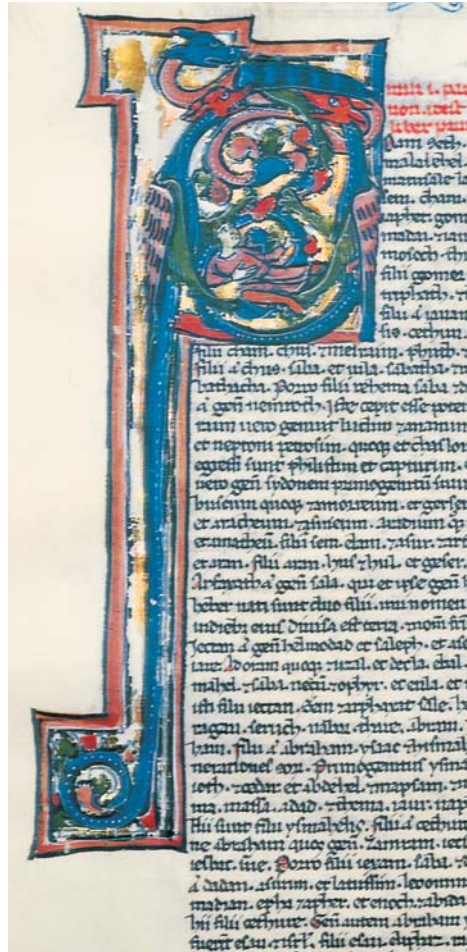 incipit i. par
non. idest
liber prim
Dam seth.
malalehel.
matusale la
sem. cham.
iaphet. gom
madai. 7 iauan
mosoch. th
filii gomer
riphath. 7
filii ă iauan
sis. cethim.
filii cham. chus. 7 mesraim. phuth.
filii ă chus. saba. et uila. sabatha. 7
bathacha. Porro filii rehema saba 7 d
ă gen̄ nemroth. Iste cepit esse poten
raim uero genuit ludim 7 anamim
et neptoni petrosim. quoq et chaslon
egressi sunt philistim et capturim.
uero gen̄ sydonem primogenitū suum
buseum quoq 7 amorreum. et gerge
et aracheum. 7 asineum. aradium q
et ematheū. filii sem. elam. 7 asur. 7 ar
et aran. filii aran. hus 7 hul. et geser.
Arfaxath ă gen̄ sala. qui et ipse gen̄
heber nati sunt duo filii. uni nomen
in dieb eius diuisa est terra. 7 nom̄ fr̄
Iectan ă gen̄ helmodad et saleph. et as
iare. Adoram quoq 7 uzal. et decla. ebal
mahel. 7 saba. necn̄ 7 ophyr. et euila. et
isti filii iectan. sem. arphaxat sale. h
ragau. seruch. nahor. thare. abram.
ham. filii ă abraham. ysaac 7 hysmah
nerationes eor. Primogenitus ysma
ioth. 7 cedar et abdehel. 7 mapsam. 7
ma. massa. adad. 7 thema. iatur. nap
Hii sunt filii ysmahelis. filii ă cethure
ne abraham quos gen̄. zamram. iect
iesboc. sue. Porro filii iexan. saba. 7
ă dadan. asurim. et latussim. leoomim
madian. epha 7 apher. et enoch. 7 abida
hii filii cethure. Gen̄ autem abraham y
fuerūt esau. 7 isrl̄. filii esau. eliphaz.